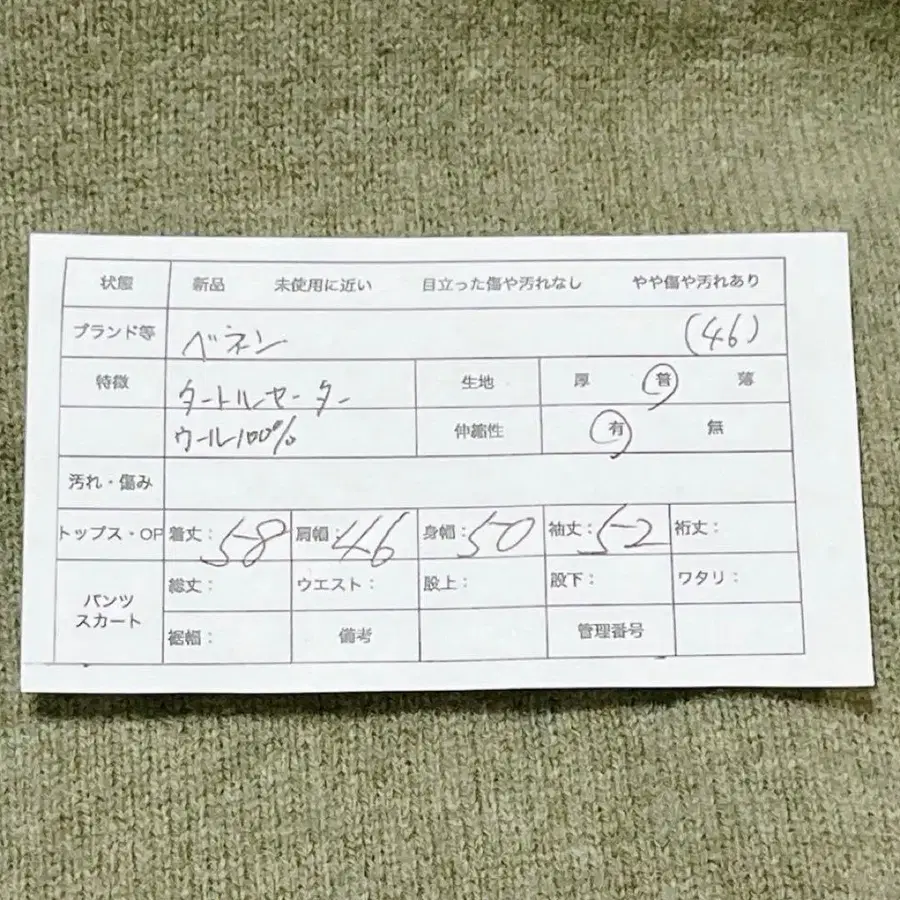 状態 新品 未使用に近い 目立った傷や汚れなし やや傷や汚れあり
ブランド等 ベネン (46)
特徴 タートルセーター 生地 厚 普 薄
ウール100% 伸縮性 有 無
汚れ・傷み
トップス・OP 着丈：58 肩幅：46 身幅：50 袖丈：52 裄丈：
パンツ 総丈： ウエスト： 股上： 股下： ワタリ：
スカート 裾幅： 備考 管理番号